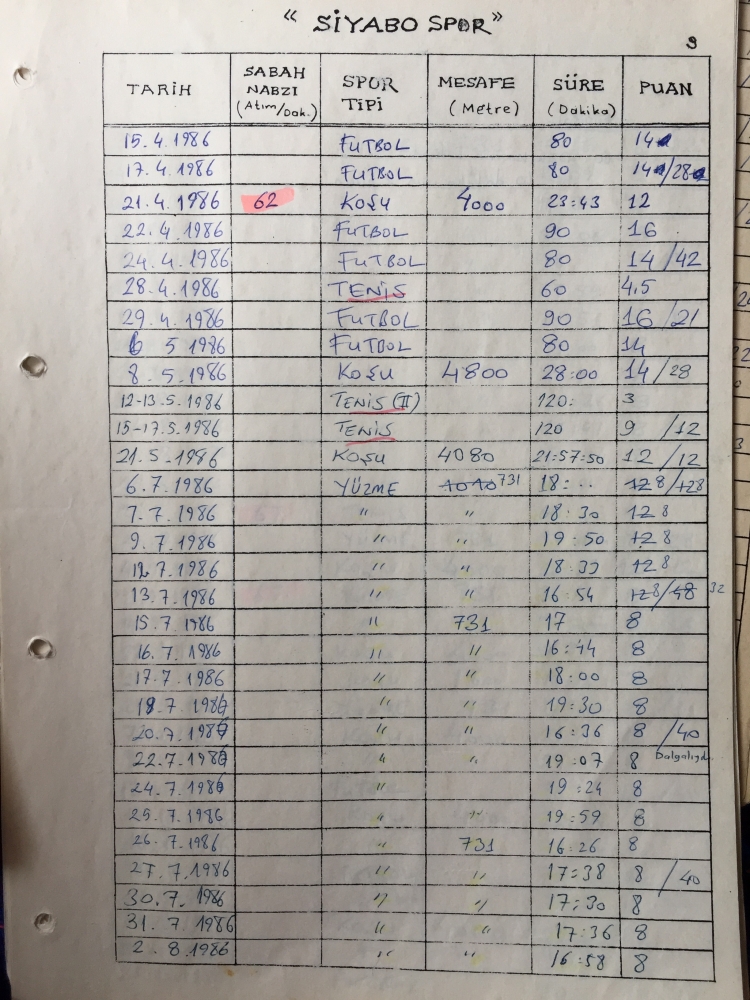 “ SİYABO SPOR”
9
TARİH SABAH NABZI (Atım/Dak.) SPOR TİPİ MESAFE (Metre) SÜRE (Dakika) PUAN
15.4.1986 FUTBOL 80 14
17.4.1986 FUTBOL 80 14/28
21.4.1986 62 KOŞU 4000 23:43 12
22.4.1986 FUTBOL 90 16
24.4.1986 FUTBOL 80 14/42
28.4.1986 TENİS 60 4.5
29.4.1986 FUTBOL 90 16/21
6 5 1986 FUTBOL 80 14
8.5.1986 KOŞU 4800 28:00 14/28
12-13.5.1986 TENİS (II) 120: 3
15-17.5.1986 TENİS 120 9 /12
21.5.1986 KOŞU 4080 21:57:50 12/12
6.7.1986 YÜZME 1010 731 18:.. 12 8/128
7.7.1986 " " 18:30 12 8
9.7.1986 " " 19:50 12 8
12.7.1986 " " 18:33 12 8
13.7.1986 " " 16:54 12 8/48 32
15.7.1986 " 731 17 8
16.7.1986 " " 16:44 8
17.7.1986 " " 18:00 8
18.7.1986 " " 19:30 8
20.7.1986 " " 16:36 8 /40
22.7.1986 " " 19:07 8 Dalgalıydı
24.7.1986 " 19:24 8
25.7.1986 " " 19:59 8
26.7.1986 " 731 16:26 8
27.7.1986 " " 17:38 8 /40
30.7.1986 " " 17:30 8
31.7.1986 " " 17:36 8
2.8.1986 " " 16:58 8